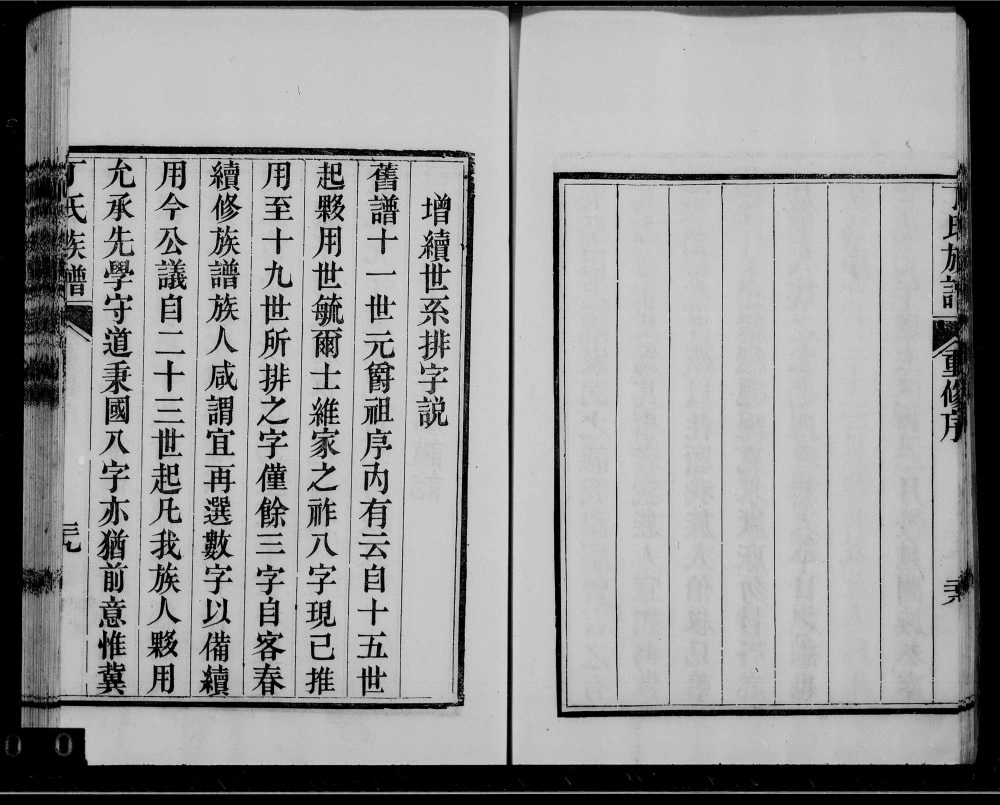 丁氏族譜
重修序
增續世系排字説
舊譜十一世元爵祖序內有云自十五世
起夥用世毓爾士維家之祚八字現已推
用至十九世所排之字僅餘三字自客春
續修族譜族人咸謂宜再選數字以備續
用今公議自二十三世起凡我族人夥用
允承先學守道秉國八字亦猶前意惟冀
丁氏族譜
三九
0 0